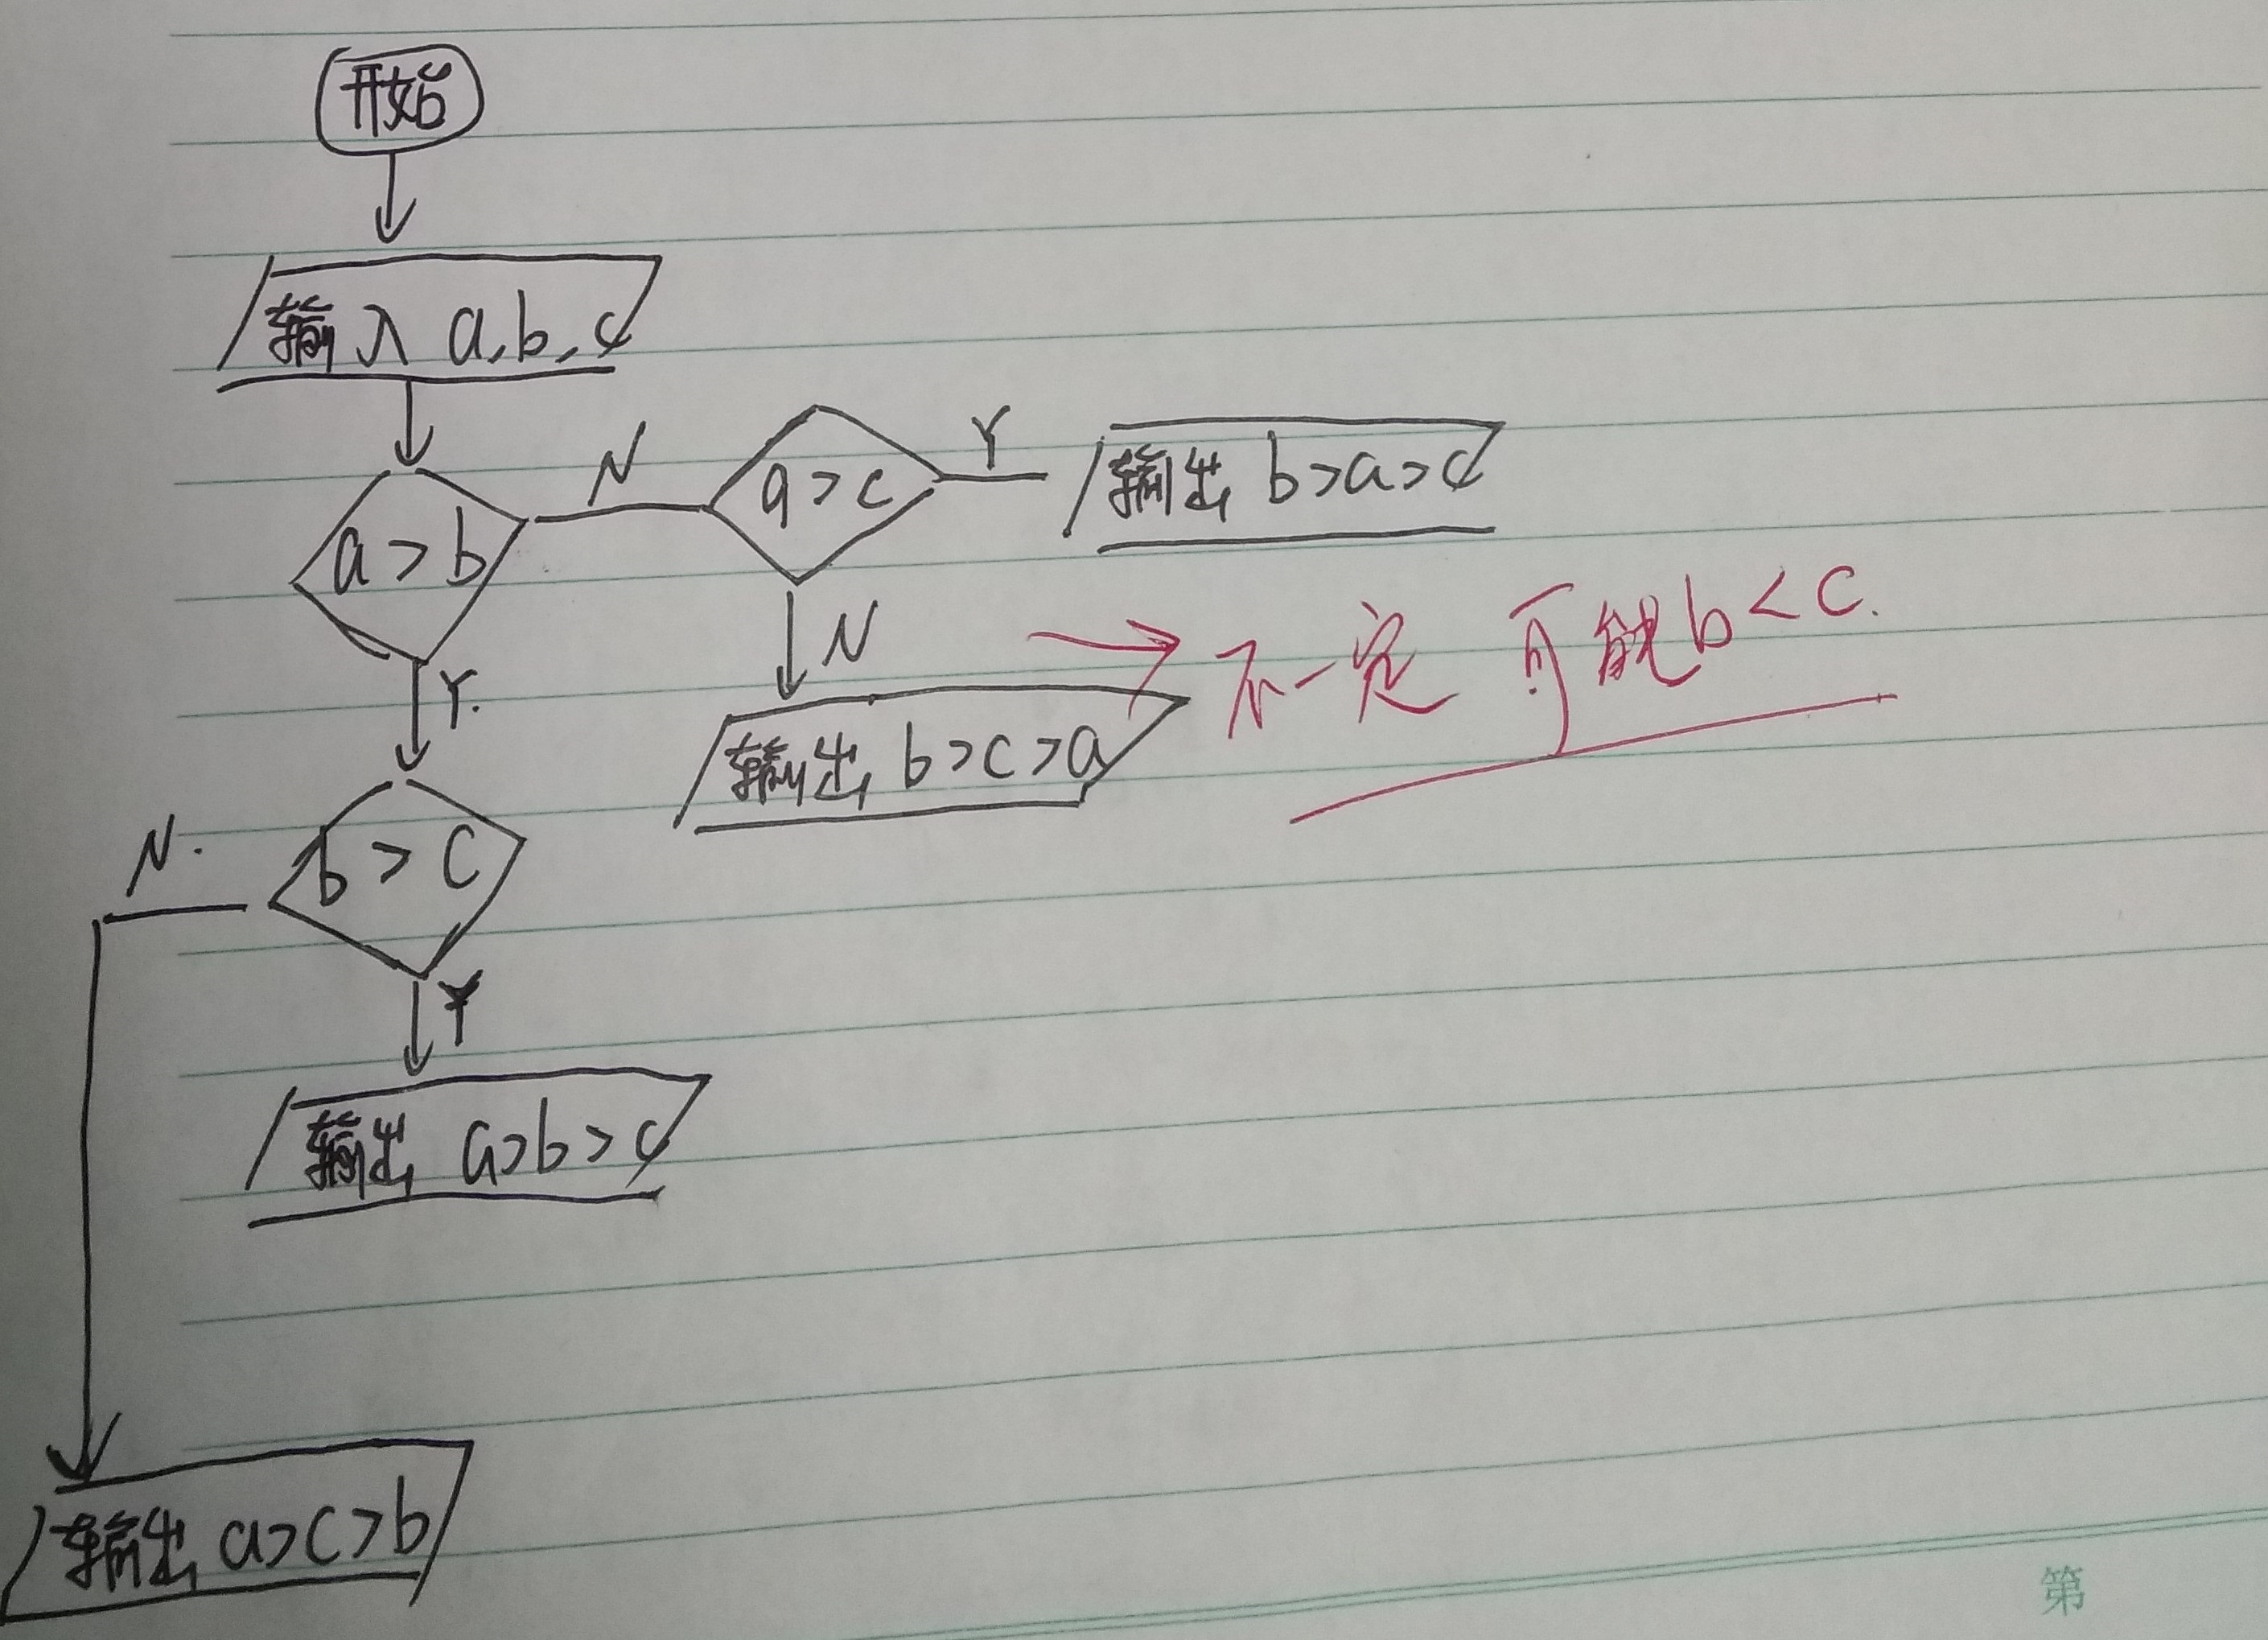 开始
输入 a,b,c
a>b
N
a>c
Y
输出 b>a>c
N
输出 b>c>a
不一定 可能b<c.
Y.
b>c
N.
Y
输出 a>b>c
输出 a>c>b
第